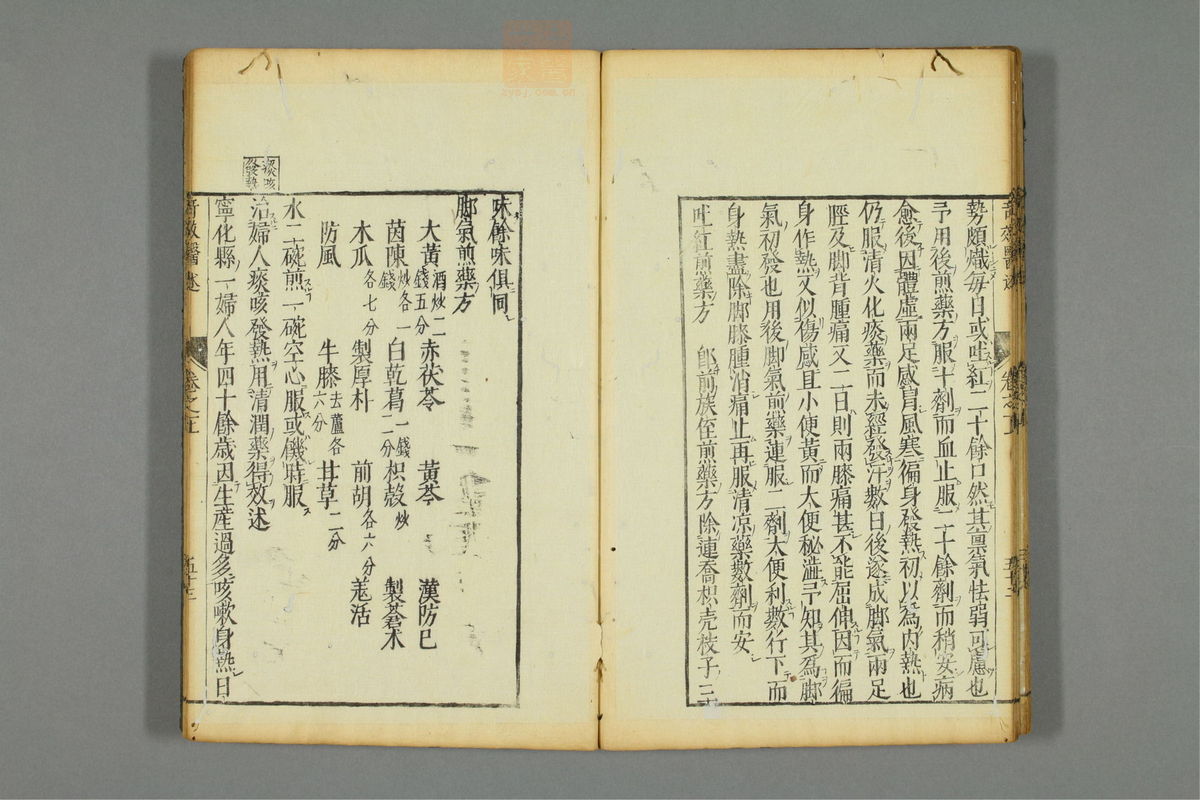 勢頗熾每日或吐紅二十餘口然其禀氣怯弱可慮也
予用後煎藥方服十劑而血止服二十餘劑而稍安病
愈後因體虛兩足感冒風寒徧身發熱初以為內熱也
仍服清火化痰藥而未經發汗數日後遂成脚氣兩足
脛及脚背腫痛又二日則兩膝痛甚不能屈伸因而徧
身作熱又似傷感且小便黃而大便秘澁予知其為脚
氣初發也用後脚氣煎藥連服二劑大便利數行下而
身熱盡除脚膝腫消痛止再服清凉藥數劑而安
吐紅煎藥方 即前族侄煎藥方除連喬枳壳枝子三
味餘味俱同
脚氣煎藥方
大黃酒炒二錢五分 赤茯苓 黃芩 漢防已
茵陳炒各一錢 白乾葛一錢二分 枳殼炒 製蒼术
木瓜各七分 製厚朴 前胡各六分 羗活
防風 牛膝去蘆各六分 甘草二分
水二碗煎一碗空心服或饑時服
痰咳發熱
治婦人痰咳發熱用清潤藥得效述
寧化縣一婦人年四十餘歲因生產過多咳嗽身熱日